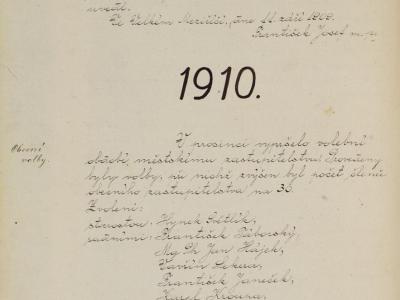 uvésti.
Ve Velkém Meziříčí, dne 11. září 1909.
František Josef m. p.
1910.
Obecní
volby.
V prosinci vypršelo volební
období městskému zastupitelstvu. Provedeny
byly volby, při nichž zvýšen byl počet členů
obecního zastupitelstva na 30.
Zvoleni:
starostou: Hynek Světlík,
radními: František Táborský,
Mg Ph Jan Hájek,
František Janeček,
Karel